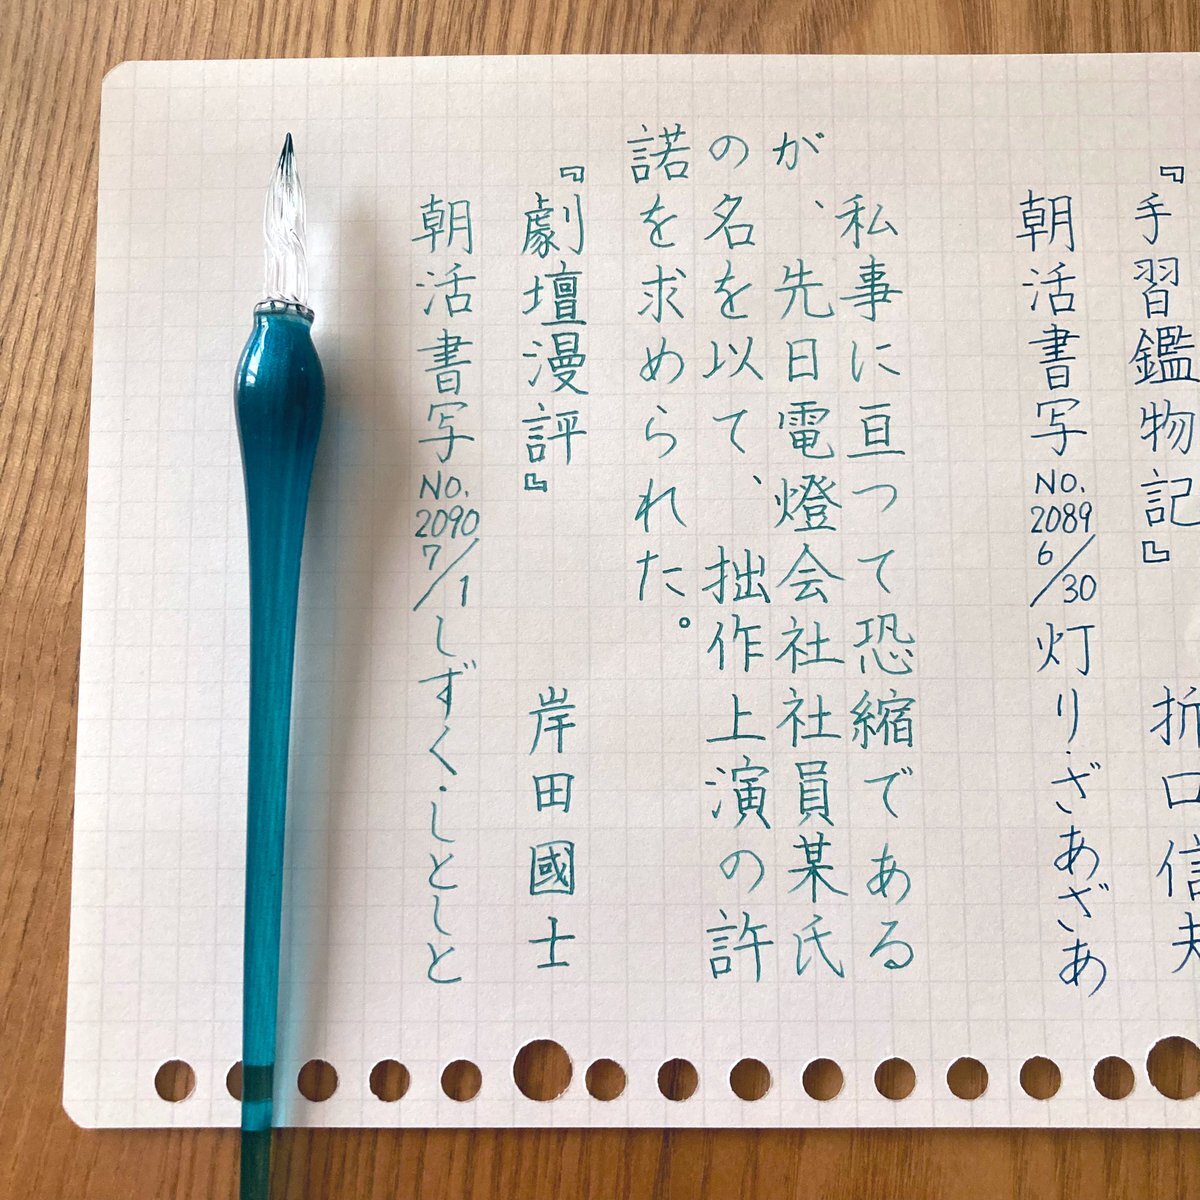 『手習鑑物記』 折口信夫
朝活書写 No. 2089 6/30 灯り・ざあざあ
私事に亘つて恐縮である
が、先日電燈会社社員某氏
の名を以て、拙作上演の許
諾を求められた。
『劇壇漫評』 岸田國士
朝活書写 No. 2090 7/1 しずく・しとしと